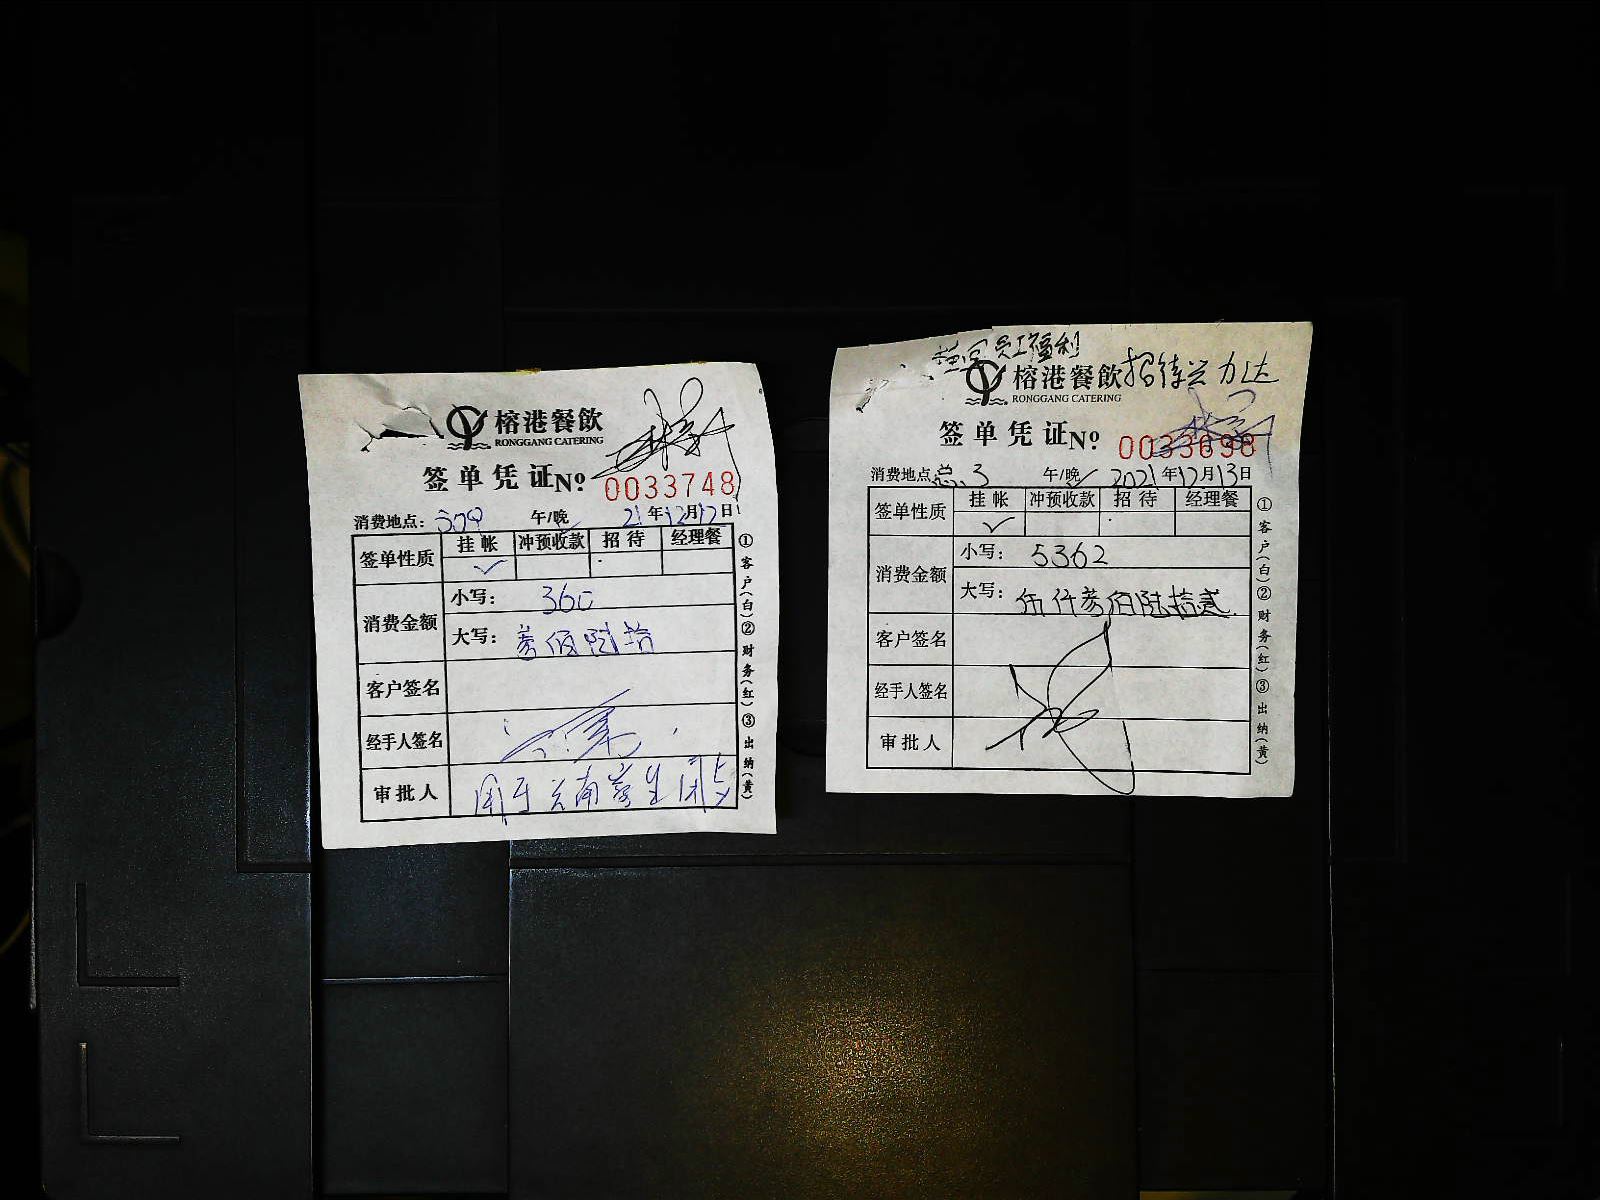 榕港餐飲
RONGGANG CATERING
签单凭证 Nº 0033748
消费地点： 午/晚 21年12月12日
签单性质 挂帐 冲预收款 招待 经理餐
✓
消费金额 小写： 360
大写： 叁佰陆拾
客户签名
经手人签名
审批人 用于
①客户(白)②财务(红)③出纳(黄)
员工福利
榕港餐飲 招待兴力达
RONGGANG CATERING
签单凭证 Nº 0033698
消费地点 总.3 午/晚✓ 2021年12月13日
签单性质 挂帐 冲预收款 招待 经理餐
✓
消费金额 小写： 5362
大写： 伍仟叁佰陆拾贰
客户签名
经手人签名
审批人
①客户(白)②财务(红)③出纳(黄)